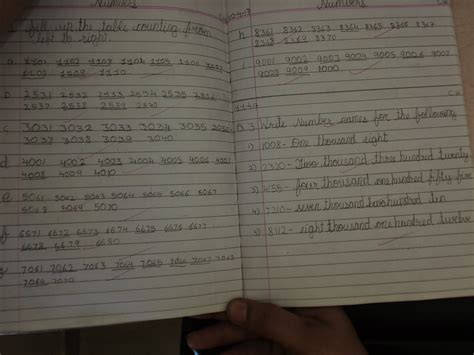 Numbers
1. Fill up the table counting from
left to right.
a 1101 1102 1103 1104 1105 1106 1107
1108 1109 1110
b 2531 2532 2533 2534 2535 2536
2537 2538 2539 2540
c 3031 3032 3033 3034 3035 3036
3037 3038 3039 3040
d 4001 4002 4003 4004 4005 4006 4007
4008 4009 4010
e 5061 5062 5063 5064 5065 5066 5067
5068 5069 5070
f 6671 6672 6673 6674 6675 6676 6677
6678 6679 6680
g 7061 7062 7063 7064 7065 7066 7067 7068
7069 7070
Numbers
h 8361 8362 8363 8364 8365 8366 8367
8368 8369 8370
i 9001 9002 9003 9004 9005 9006 9007
9008 9009 1000
C.W
3. Write Number names for the following
1) 1008 - One thousand eight
2) 2320 - Two thousand three hundred twenty
3) 4155 - four thousand one hundred fifty five
4) 7210 - seven thousand two hundred ten
5) 8112 - eight thousand one hundred twelve